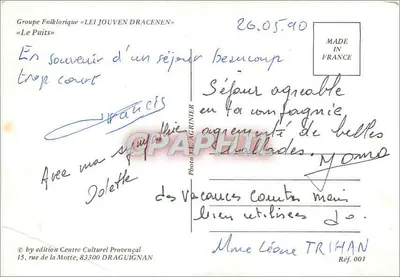 Groupe Folklorique «LEI JOUVEN DRACENEN»
«Le Puits»
26.05.90
MADE IN
FRANCE
En souvenir d'un séjour beaucoup
trop court
Francis
Séjour agréable
en la compagnie
agrémenté de belles
Avec ma sympathie
Odette
Photo J.L. AGRINIER
des vacances courtes mais
bien utilisées Jo.
Mme Léone TRIHAN
© by edition Centre Culturel Provençal
15, rue de la Motte, 83300 DRAGUIGNAN
Réf. 001